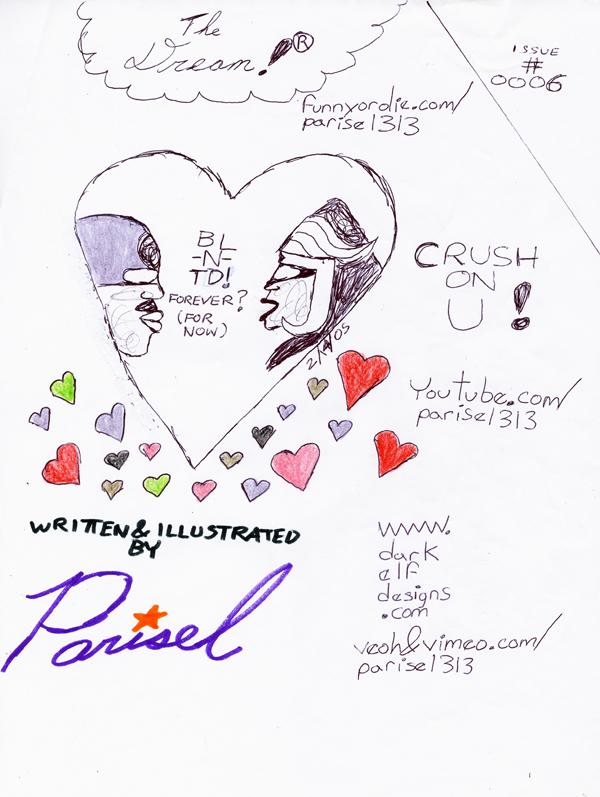 The
Dream!®
ISSUE
#
0006
funnyordie.com/
parisel313
BL
-N-
TD!
FOREVER?
(FOR
NOW)
2/14/05
CRUSH
ON
U!
YouTube.com/
parisel313
WRITTEN & ILLUSTRATED
BY
Parisel
www.
dark
elf
designs
.com
veoh&vimeo.com/
parisel313